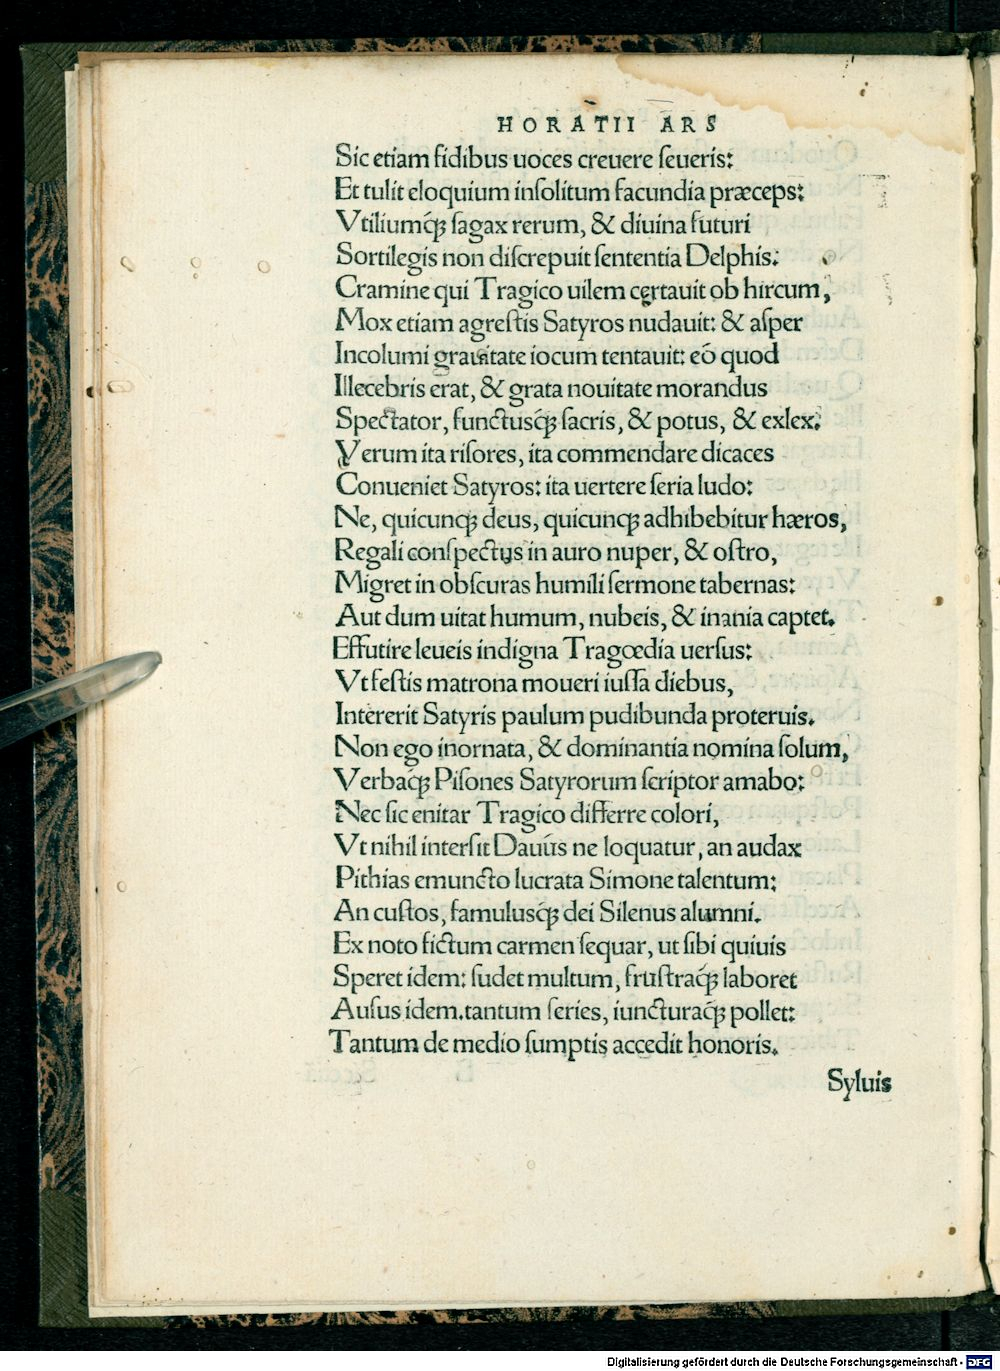 HORATII ARS
Sic etiam fidibus uoces creuere ſeueris:
Et tulit eloquium inſolitum facundia præceps:
Vtiliumq́ꝫ ſagax rerum, & diuina futuri
Sortilegis non diſcrepuit ſententia Delphis.
Cramine qui Tragico uilem certauit ob hircum,
Mox etiam agreſtis Satyros nudauit: & aſper
Incolumi grauitate iocum tentauit: eo quod
Illecebris erat, & grata nouitate morandus
Spectator, functusq́ꝫ ſacris, & potus, & exlex.
Verum ita riſores, ita commendare dicaces
Conueniet Satyros: ita uertere ſeria ludo:
Ne, quicunqꝫ deus, quicunqꝫ adhibebitur hæros,
Regali conſpectus in auro nuper, & oſtro,
Migret in obſcuras humili ſermone tabernas:
Aut dum uitat humum, nubeis, & inania captet.
Effutire leueis indigna Tragœdia uerſus:
Vt feſtis matrona moueri iuſſa diebus,
Intererit Satyris paulum pudibunda proteruis.
Non ego inornata, & dominantia nomina ſolum,
Verbaq́ꝫ Piſones Satyrorum ſcriptor amabo:
Nec ſic enitar Tragico differre colori,
Vt nihil interſit Dauus ne loquatur, an audax
Pithias emuncto lucrata Simone talentum:
An cuſtos, famulusq́ꝫ dei Silenus alumni.
Ex noto fictum carmen ſequar, ut ſibi quiuis
Speret idem: ſudet multum, fruſtraq́ꝫ laboret
Auſus idem. tantum ſeries, iuncturaq́ꝫ pollet:
Tantum de medio ſumptis accedit honoris.
Syluis
Digitalisierung gefördert durch die Deutsche Forschungsgemeinschaft - DFG